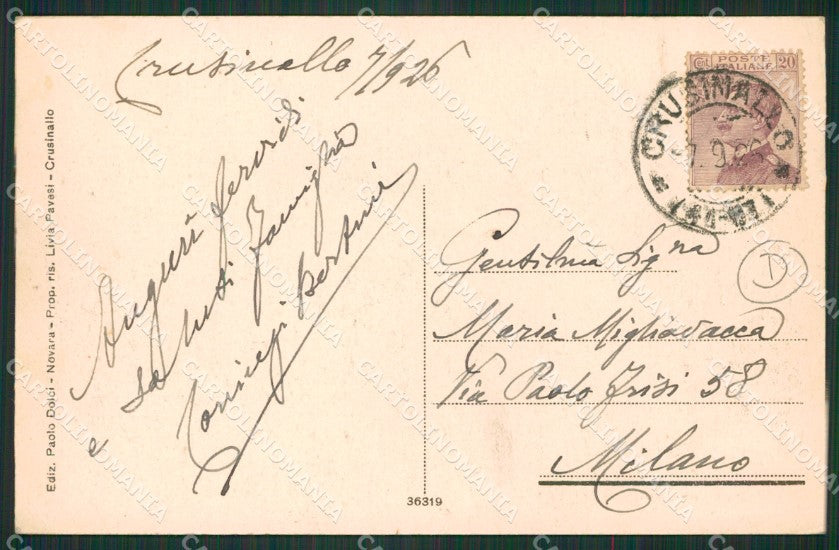 Crusinallo 7/9 26
Auguri fervidi
e saluti Famiglia
Ediz. Paolo Dolci - Novara - Prop. ris. Livia Pavesi - Crusinallo
Cent. POSTE ITALIANE 20
CRUSINALLO
-7. 9.26
Gentilma Sigra
Maria Migliavacca
Via Paolo Frisi 58
Milano
D
36319
CARTOLINOMANIA